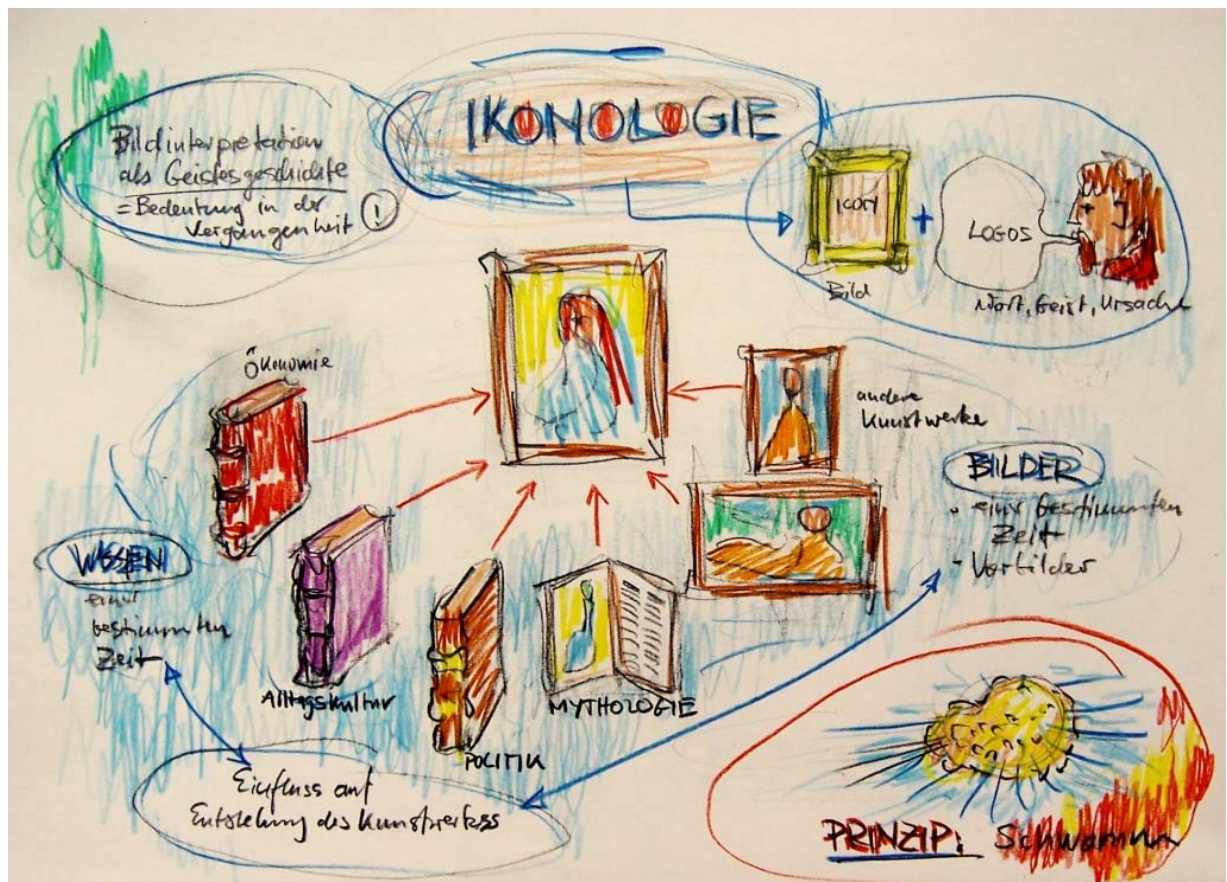 IKONOLOGIE
Bildinterpretation
als Geistesgeschichte
= Bedeutung in der
Vergangenheit !
ICON
+
LOGOS
Bild
Wort, Geist, Ursache
Ökonomie
andere
Kunstwerke
BILDER
• einer bestimmten
Zeit
- Vorbilder
WISSEN
einer
bestimmten
Zeit
Alltagskultur
POLITIK
MYTHOLOGIE
Einfluss auf
Entstehung des Kunstwerkes
PRINZIP: Schwamm